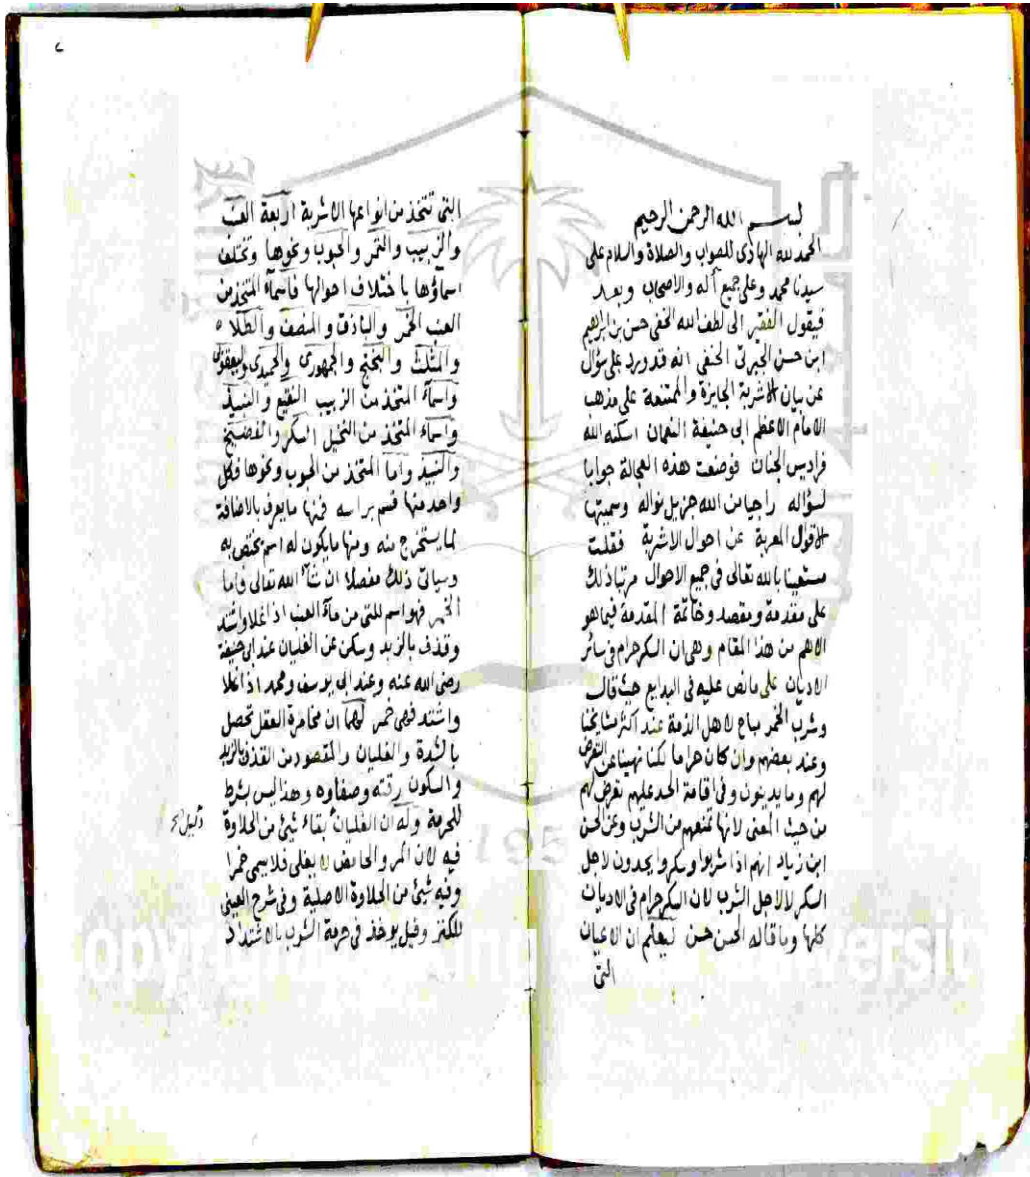 بسم الله الرحمن الرحيم
الحمد لله الهادى للصواب والصلاة والسلام على
سيدنا محمد وعلى جميع آله والاصحاب وبعد
فيقول الفقير الى لطف الله الخفى حسن بن ابراهيم
ابن حسن الجبرتى الحنفى انه قد ورد على سؤال
عن بيان الاشربة الجايزة والممتنعة على مذهب
الامام الاعظم ابى حنيفة النعمان اسكنه الله
فراديس الجنان فوضعت هذه العجالة جوابا
لسؤاله راجيا من الله جزيل نواله وسميتها
الاقوال المعربة عن احوال الاشربة فقلت
مستعينا بالله تعالى فى جميع الاحوال مرتبا ذلك
على مقدمة ومقصد وخاتمة المقدمة فيما هو
الاهم من هذا المقام وهى ان السكر حرام فى سائر
الاديان على ما نص عليه فى البدايع حيث قال
وشرب الخمر مباح لاهل الذمة عند اكثر مشايخنا
وعند بعضهم وان كان حراما لكنا نهينا عن التعرض
لهم وما يدينون وفى اقامة الحد عليهم تعرض لهم
من حيث المعنى لانها تمنعهم من الشرب وعن الحسن
ابن زياد انهم اذا شربوا وسكروا يحدون لاجل
السكر لا لاجل الشرب لان السكر حرام فى الاديان
كلها وما قاله الحسن حسن ليعلم ان الاعيان
التى
التى تتخذ من انواعها الاشربة اربعة العنب
والزبيب والتمر والحبوب ونحوها وتختلف
اسماؤها باختلاف احوالها فاسماء المتخذ من
العنب الخمر والباذق والمنصف والطلاء
والمثلث والبختج والجمهورى والحميدى واليعقوبى
واسماء المتخذ من الزبيب النقيع والنبيذ
واسماء المتخذ من النخيل السكر والفضيخ
والنبيذ واما المتخذ من الحبوب ونحوها فكل
واحد منها قسم براسه فمنها ما يعرف بالاضافة
لما يستخرج منه ومنها ما يكون له اسم يختص به
وسياتى ذلك مفصلا ان شاء الله تعالى فاما
الخمر فهو اسم للنى من ماء العنب اذا غلا واشتد
وقذف بالزبد وسكن عن الغليان عند ابى حنيفة
رضى الله عنه وعند ابى يوسف ومحمد اذا غلا
واشتد فهى خمر لهما ان مخامرة العقل تحصل
بالشدة والغليان والمقصود من القذف بالزبد
والسكون رقته وصفاوه وهذا ليس بشرط
للحرمة وله ان الغليان بقاء شيئ من الحلاوة
دليل
فيه لان المر والحامض لا يغلى فلا يسمى خمرا
وفيه شيئ من الحلاوة الاصلية وفى شرح العينى
للكنز وقيل يوخذ فى حرمة الشرب بالاشتداد